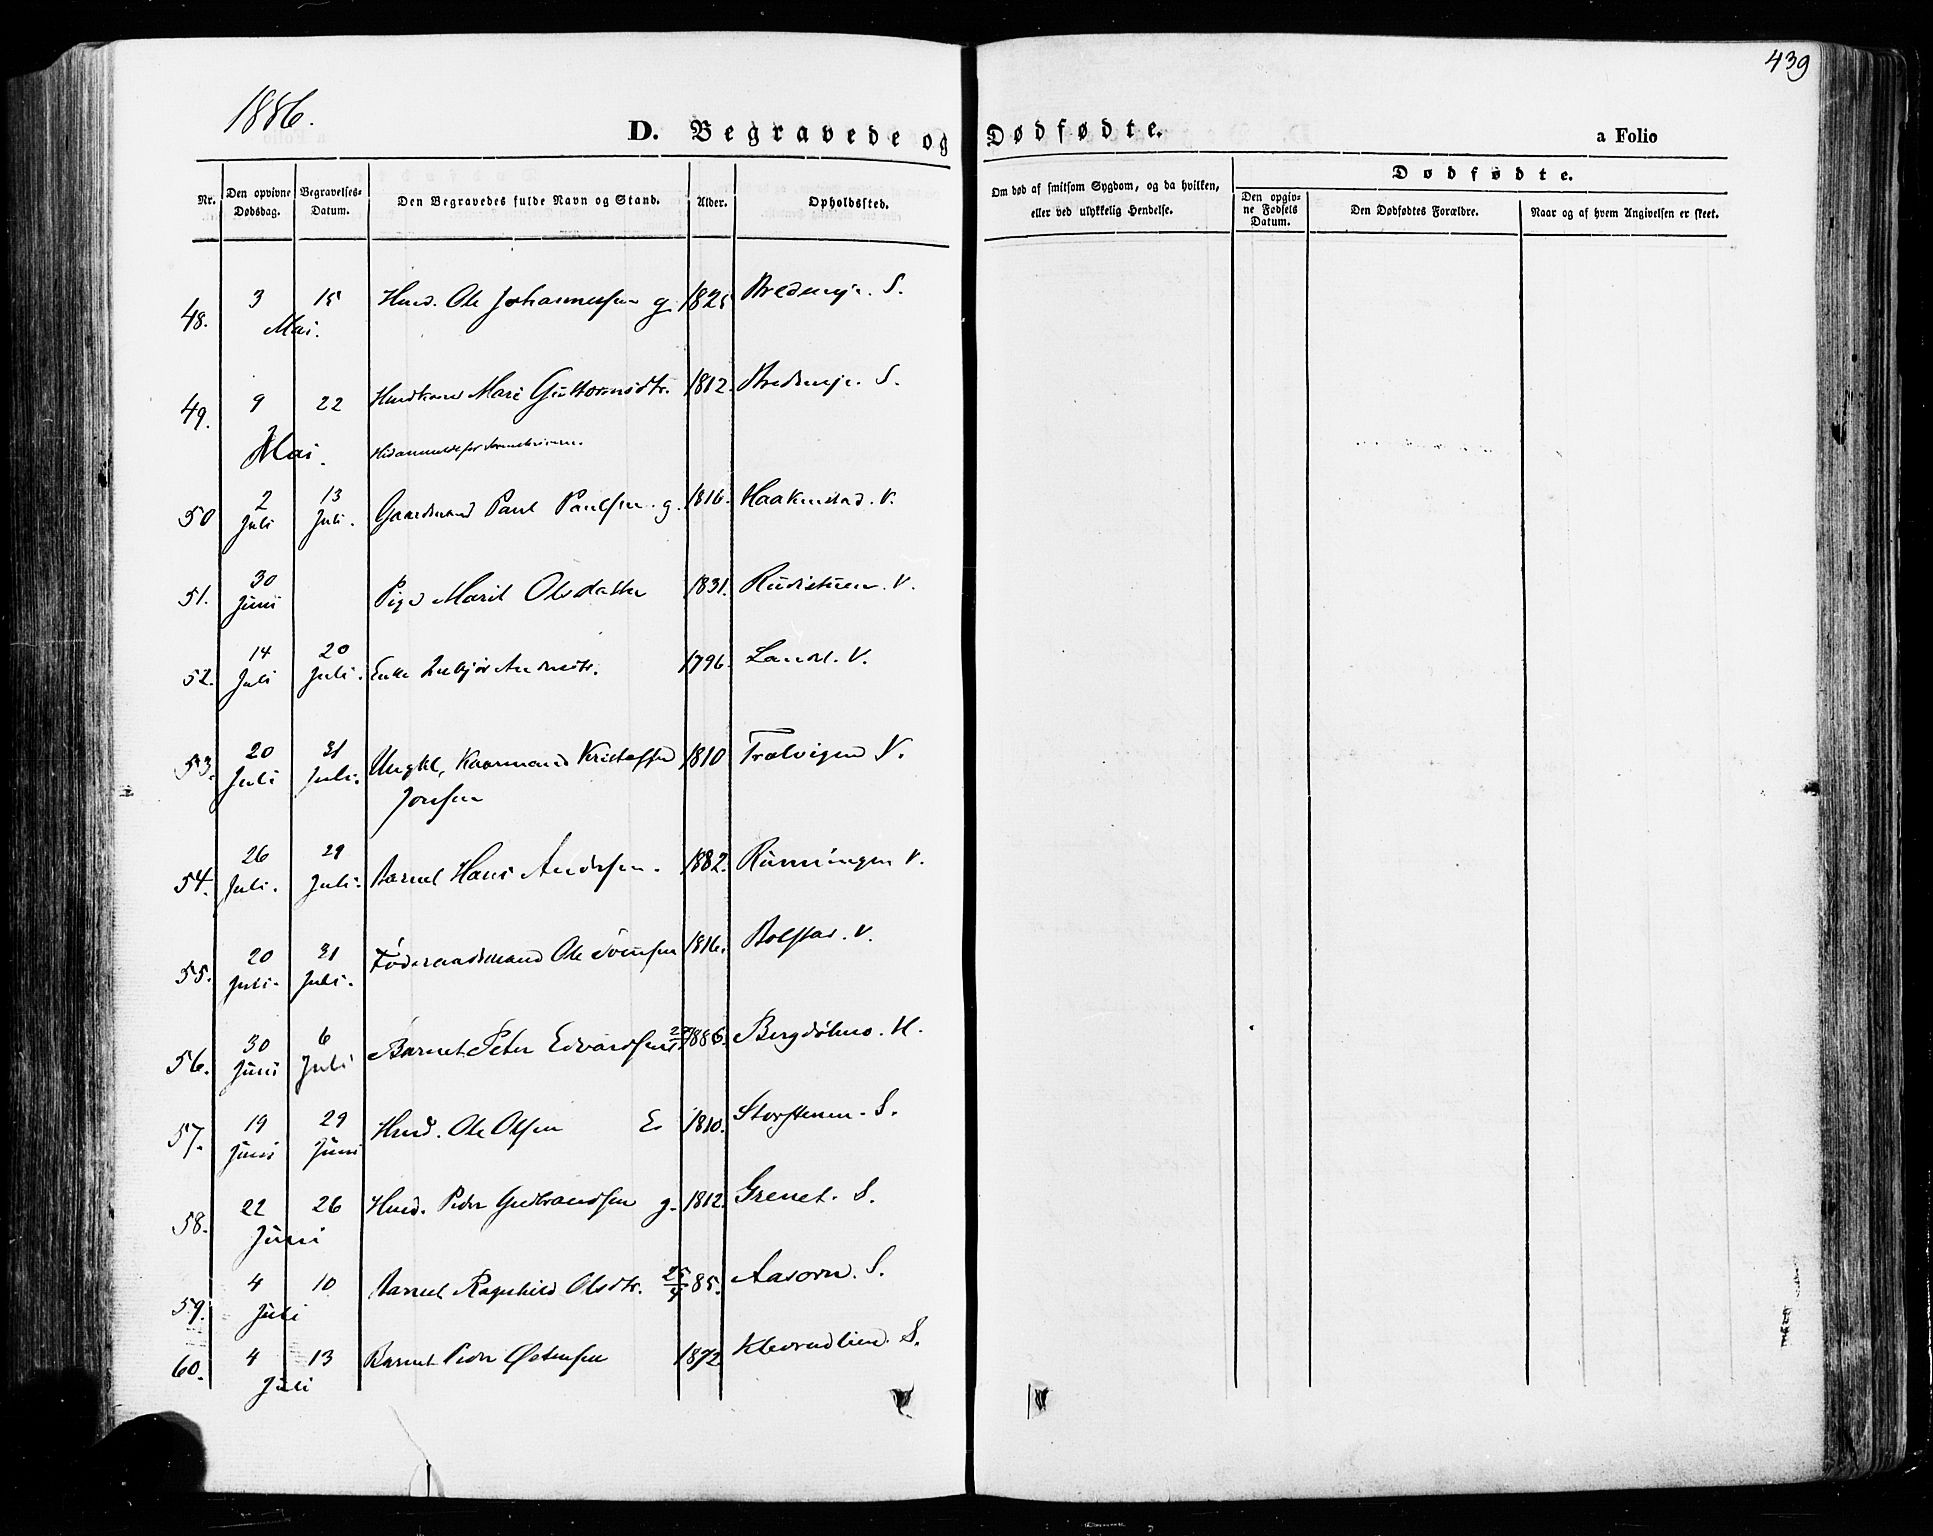 439
1886.
D. Begravede og Dødfødte.
a Folio
Nr. Den opgivne Dødsdag. Begravelses-Datum. Den Begravedes fulde Navn og Stand. Alder. Opholdssted. Om død af smitsom Sygdom, og da hvilken, eller ved ulykkelig Hendelse. Dødfødte.
Den opgivne Fødsels Datum. Den Dødfødtes Forældre. Naar og af hvem Angivelsen er skeet.
48. 3 15 Mai. Husd. Ole Johannessen g. 1825 S.
49. 9 22 Mai. Mari Guttormsdtr. 1812. S.
50 2 Juli 13 Juli. Gaardmand Paul Paulsen. g. 1816. Haakenstad. V.
51. 30 Juni Pige Marit Olsdatter 1831. Rudistuen. V.
52. 14 Juli 20 Juli. Enke 1796. V.
53. 20 Juli 31 Juli. Ungkl, Kristoffer
Jonsen 1810 Trolvigen V.
54. 26 Juli. 29 Juli. Barnet Hans Andersen. 1882. Rünningen V.
55. 20 Juli. 31 Juli. Føderaadsmand Ole 1816. Bolstad. V.
56. 30 Juni 6 Juli Barnet Peter Edvardsen 1886. H.
57. 19 Juni 29 Juni Husd. Ole Olsen E 1810. S.
58. 22 26 Juni Husd. Peder Gudbrandsen g. 1812. Grenet. S.
59. 4 10 Juli Barnet Ragnhild Olsdtr. 85. S.
60. 4 13 Juli Barnet Peder Østensen 1872 S.